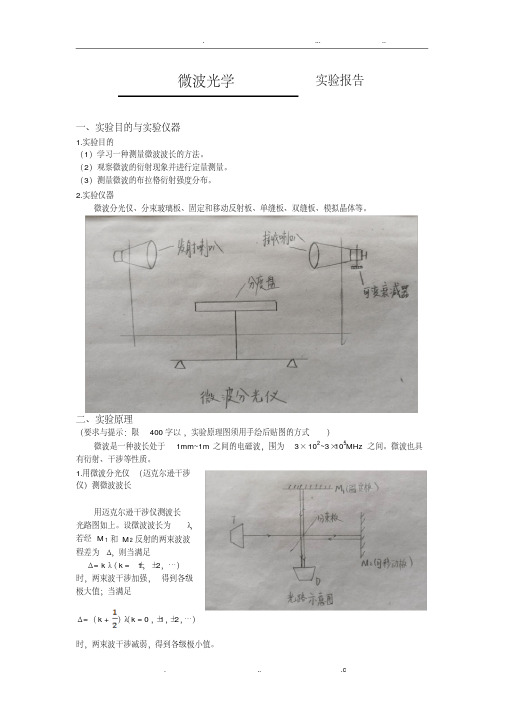 . ... _
微波光学 实验报告
一、实验目的与实验仪器
1.实验目的
（1）学习一种测量微波波长的方法。
（2）观察微波的衍射现象并进行定量测量。
（3）测量微波的布拉格衍射强度分布。
2.实验仪器
微波分光仪、分束玻璃板、固定和移动反射板、单缝板、双缝板、模拟晶体等。
发射喇叭
接收喇叭
分度盘
可变衰减器
微波分光仪
二、实验原理
（要求与提示：限 400 字以，实验原理图须用手绘后贴图的方式 ）
微波是一种波长处于 1mm~1m 之间的电磁波，围为 3×10²~3×10⁴MHz 之间。微波也具
有衍射、干涉等性质。
1.用微波分光仪 （迈克尔逊干涉
仪）测微波波长
用迈克尔逊干涉仪测波长
光路图如上。设微波波长为 λ，
若经 M1 和 M2 反射的两束波波
程差为 Δ，则当满足
Δ= k λ（ k = ±1，±2，…）
时，两束波干涉加强， 得到各级
极大值；当满足
Δ=（k + 1/2）λ（k = 0，±1，±2，…）
时，两束波干涉减弱，得到各级极小值。
M₁(固定板)
分束板
D
光路示意图
. .. .c